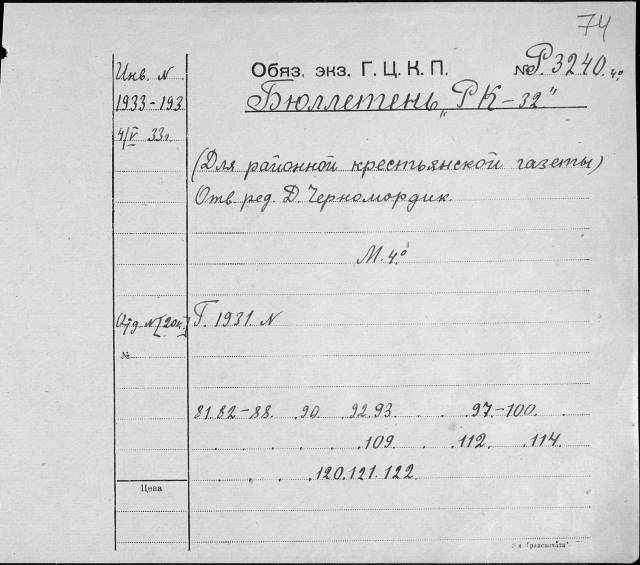 74
Обяз. экз. Г. Ц. К. П. № Р. 3240. 4°
Инв. N.
1933-193
4/V 33г.
Бюллетень "РК-32"
(Для районной крестьянской газеты)
Отв. ред. Д. Черномордик.
М. 4°
Отд. N [20к.] Г. 1931. N
№
81. 82-88. .90. 92.93. . . 97-100. .
. . . . 109. . . 112. . 114.
. . . .120.121.122.
Цена